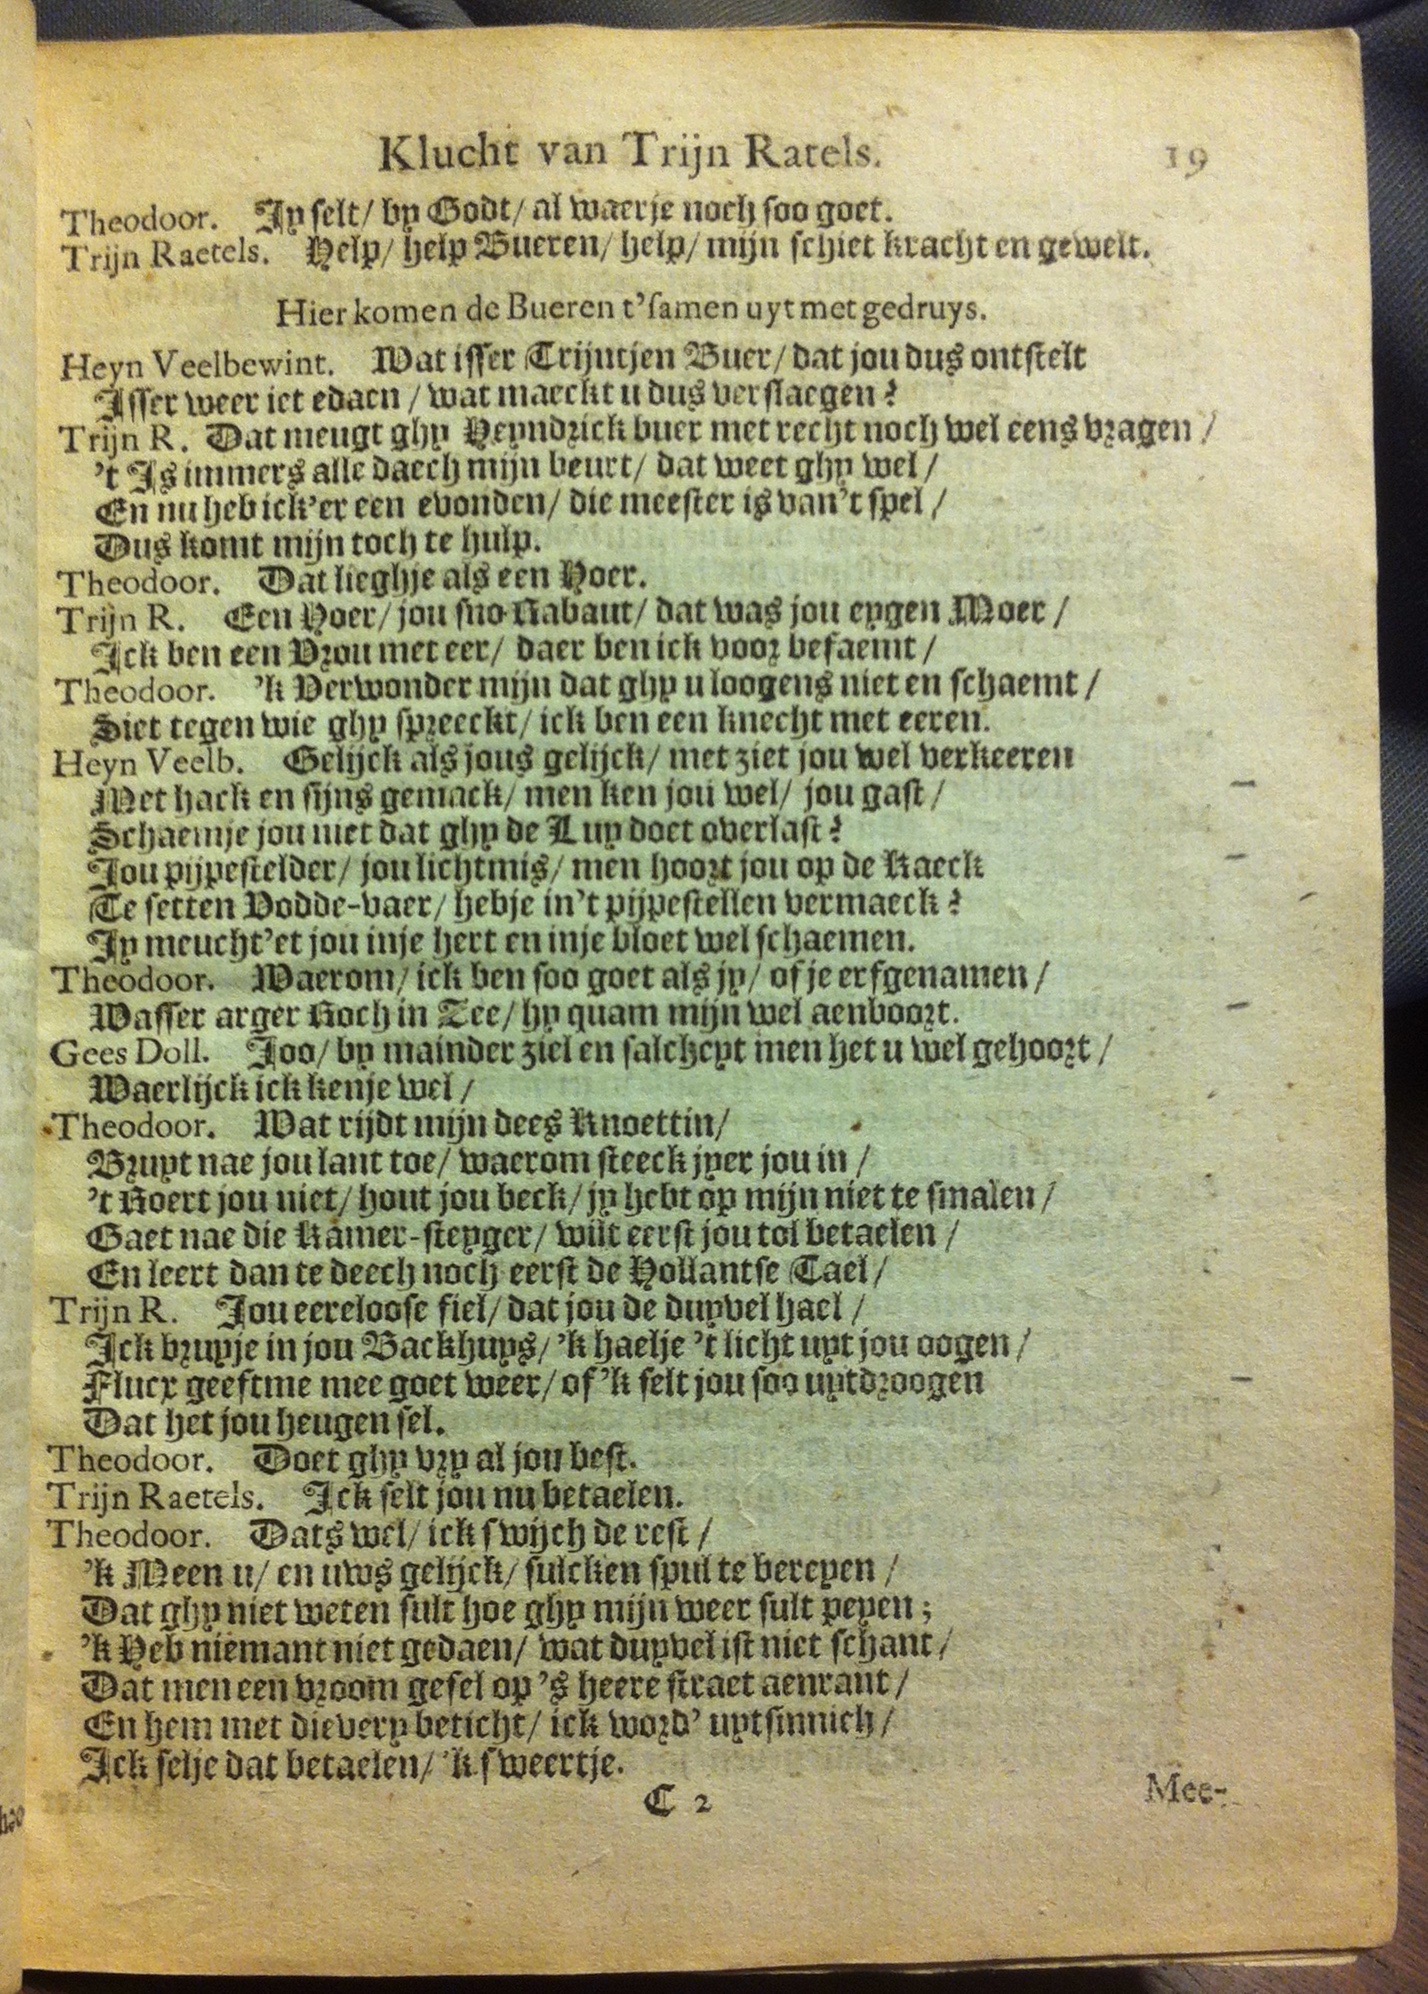 Klucht van Trijn Ratels. 19
Theodoor. Jy selt/ by Godt/ al waerje noch soo goet.
Trijn Raetels. Help/ help Bueren/ help/ mijn schiet kracht en gewelt.
Hier komen de Bueren t'samen uyt met gedruys.
Heyn Veelbewint. Wat isser Trijntjen Buer/ dat jou dus ontstelt
Isser weer iet edaen / wat maeckt u dus verslaegen?
Trijn R. Dat meugt ghy Heyndrick buer met recht noch wel eens vragen /
't Is immers alle daech mijn beurt/ dat weet ghy wel /
En nu heb ick'er een evonden/ die meester is van't spel /
Dus komt mijn toch te hulp.
Theodoor. Dat lieghje als een Hoer.
Trijn R. Een Hoer/ jou sno Rabaut/ dat was jou eygen Moer /
Ick ben een Vrou met eer/ daer ben ick voor befaemt /
Theodoor. 'k Verwonder mijn dat ghy u loogens niet en schaemt /
Siet tegen wie ghy spreeckt/ ick ben een knecht met eeren.
Heyn Veelb. Gelijck als jous gelijck/ met ziet jou wel verkeeren
Met hack en sijns gemack/ men ken jou wel/ jou gast /
Schaemje jou niet dat ghy de Luy doet overlast?
Jou pijpestelder/ jou lichtmis/ men hoort jou op de Kaeck
Te setten Vodde-vaer/ hebje in't pijpestellen vermaeck?
Jy meucht'et jou inje hert en inje bloet wel schaemen.
Theodoor. Waerom/ ick ben soo goet als jy/ of je erfgenamen /
Wasser arger Roch in Zee/ hy quam mijn wel aenboort.
Gees Doll. Joo/ by mainder ziel en salcheyt men het u wel gehoort /
Waerlijck ick kenje wel /
Theodoor. Wat rijdt mijn dees Knoettin/
Bruyt nae jou lant toe/ waerom steeck jyer jou in /
't Roert jou niet/ hout jou beck/ jy hebt op mijn niet te smalen /
Gaet nae die Kamer-steyger/ wilt eerst jou tol betaelen /
En leert dan te deech noch eerst de Hollantse Tael /
Trijn R. Jou eereloose fiel/ dat jou de duyvel hael /
Ick bruyje in jou Backhuys/ 'k haelje 't licht uyt jou oogen /
Flucx geeftme mee goet weer/ of 'k selt jou soo uytdroogen
Dat het jou heugen sel.
Theodoor. Doet ghy vry al jou best.
Trijn Raetels. Ick selt jou nu betaelen.
Theodoor. Dats wel/ ick swijch de rest /
'k Meen u/ en uws gelijck/ sulcken spul te bereyen /
Dat ghy niet weten sult hoe ghy mijn weer sult peyen;
'k Heb niemant niet gedaen/ wat duyvel ist niet schant /
Dat men een vroom gesel op 's heere straet aenrant /
En hem met dievery beticht/ ick word' uytsinnich /
Ick selje dat betaelen/ 'k sweertje.
C 2 Mee-